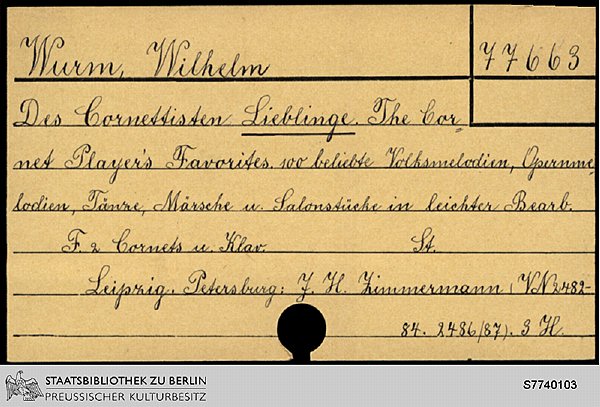 Wurm, Wilhelm
77663
Des Cornettisten Lieblinge. The Cor-
net Player's Favorites. 100 beliebte Volksmelodien, Opernme-
lodien, Tänze, Märsche u. Salonstücke in leichter Bearb.
F. 2 Cornets u. Klav. St.
Leipzig. Petersburg: J. H. Zimmermann (VN 2482-
84. 2486/87). 3 H.
STAATSBIBLIOTHEK ZU BERLIN
PREUSSISCHER KULTURBESITZ
S7740103